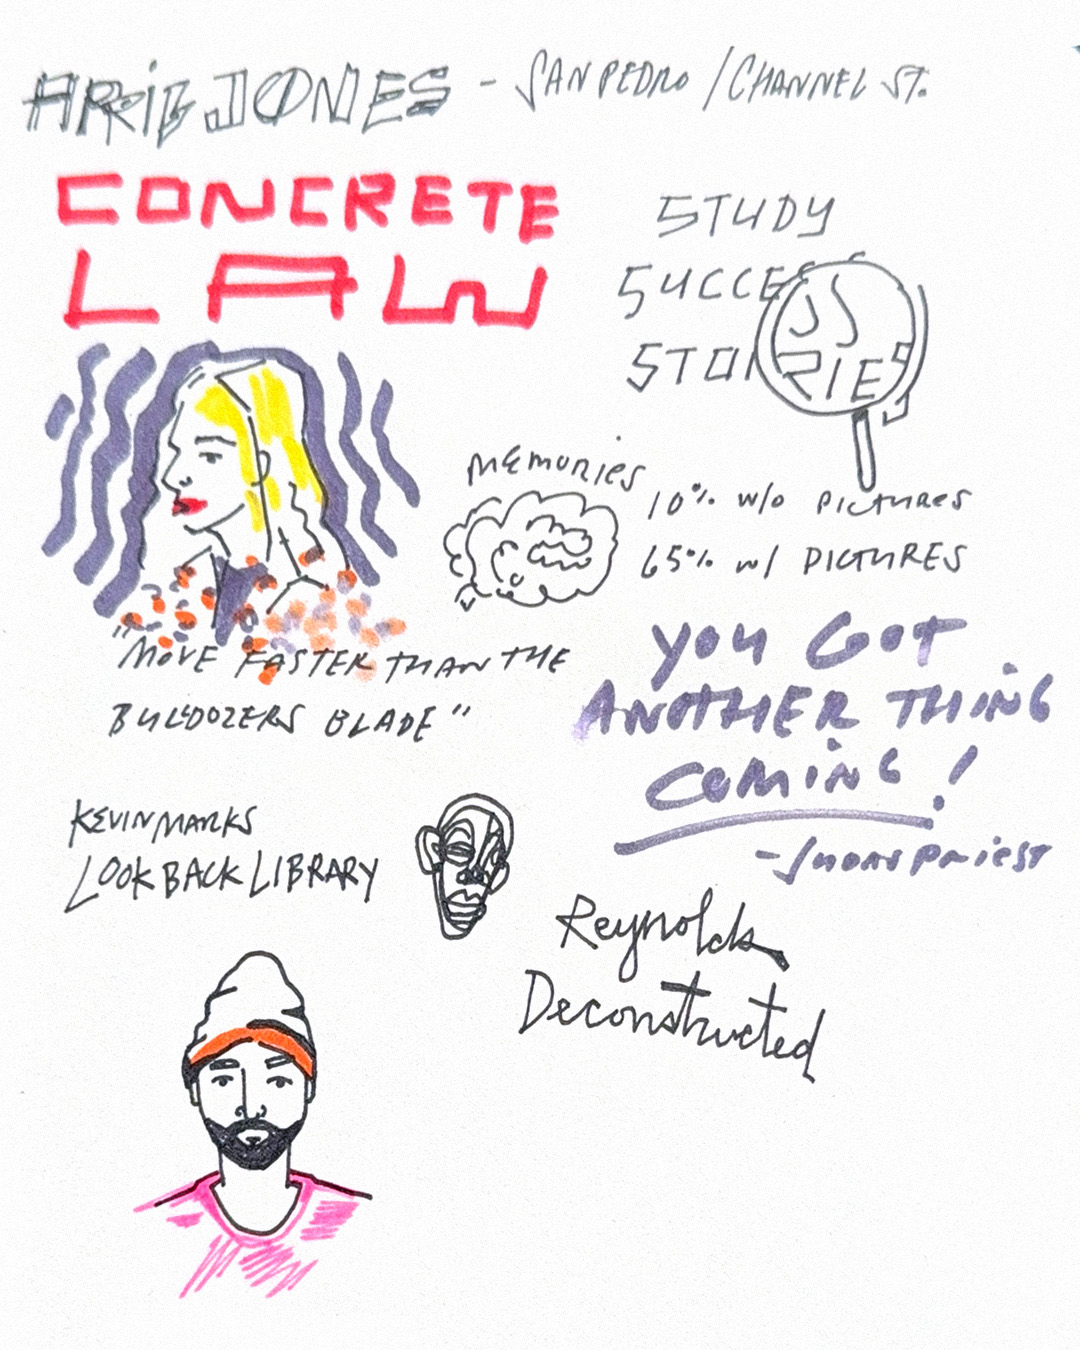 ARIE JONES - SAN PEDRO / CHANNEL ST.
CONCRETE
LAW
STUDY
SUCCESS
STORIES
MEMORIES
10% W/O PICTURES
65% W/ PICTURES
"MOVE FASTER THAN THE
BULLDOZERS BLADE"
YOU GOT
ANOTHER THING
COMING!
PRIEST
KEVIN MARKS
LOOK BACK LIBRARY
Reynolds
Deconstructed